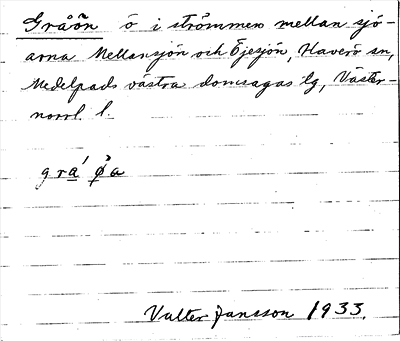 Gråön ö i strömmen mellan sjö-
arna Mellansjön och Öjesjön, Haverö sn,
Medelpads västra domsagas tg, Väster-
norrl. l.
gra´ ø̀a
Valter Jansson 1933.